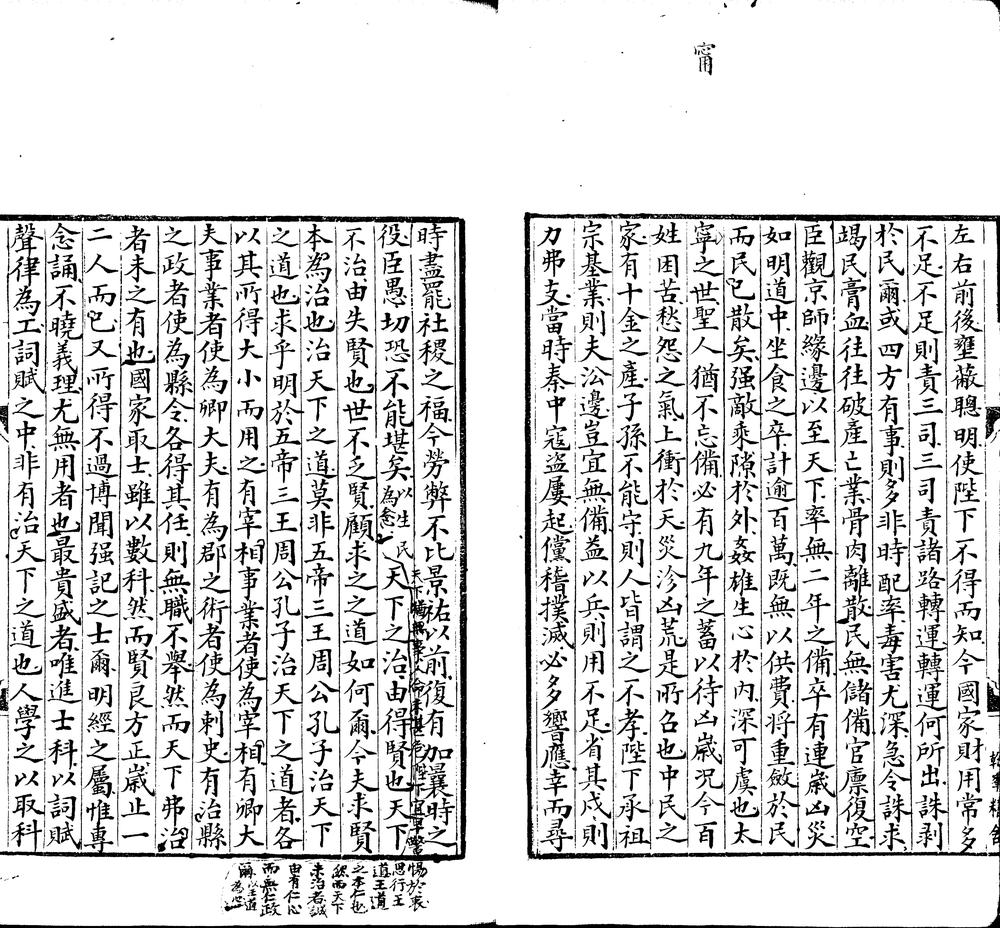 甯
左右前後壅蔽聰明使陛下不得而知今國家財用常多
不足不足則責三司三司責諸路轉運轉運何所出誅剥
於民爾或四方有事則多非時配率毒害尤深急令誅求
竭民膏血往往破產亡業骨肉離散民無儲備官廩復空
臣觀京師緣邊以至天下率無二年之備卒有連歲凶災
如明道中坐食之卒計逾百萬既無以供費將重斂於民
而民已散矣强敵乘隙於外姦雄生心於內深可虞也太
寧之世聖人猶不忘備必有九年之蓄以待凶歲况今百
姓困苦愁怨之氣上衝於天災沴凶荒是所召也中民之
家有十金之產子孫不能守則人皆謂之不孝陛下承祖
宗基業則夫㳂邊豈宜無備益以兵則用不足省其戍則
力弗支當時秦中寇盗屢起儻稽撲滅必多響應幸而尋
時盡罷社稷之福今勞弊不比景祐以前復有加曩時之
役臣愚切恐不能堪矣
以生民
為念
天下之治由得賢也天下
不治由失賢也世不乏賢顧求之之道如何爾今夫求賢
本為治也治天下之道莫非五帝三王周公孔子治天下
之道也求乎明於五帝三王周公孔子治天下之道者各
以其所得大小而用之有宰相事業者使為宰相有卿大
夫事業者使為卿大夫有為郡之術者使為刺史有治縣
之政者使為縣令各得其任則無職不舉然而天下弗治
者未之有也國家取士雖以數科然而賢良方正歲止一
二人而已又所得不過博聞强記之士爾明經之屬惟專
念誦不曉義理尤無用者也最貴盛者唯進士科以詞賦
聲律為工詞賦之中非有治天下之道也人學之以取科
惕於衷
思行王
道王道
之本仁也
然而天下
未治者誠
由有仁心
而無仁政
爾以王道
為心